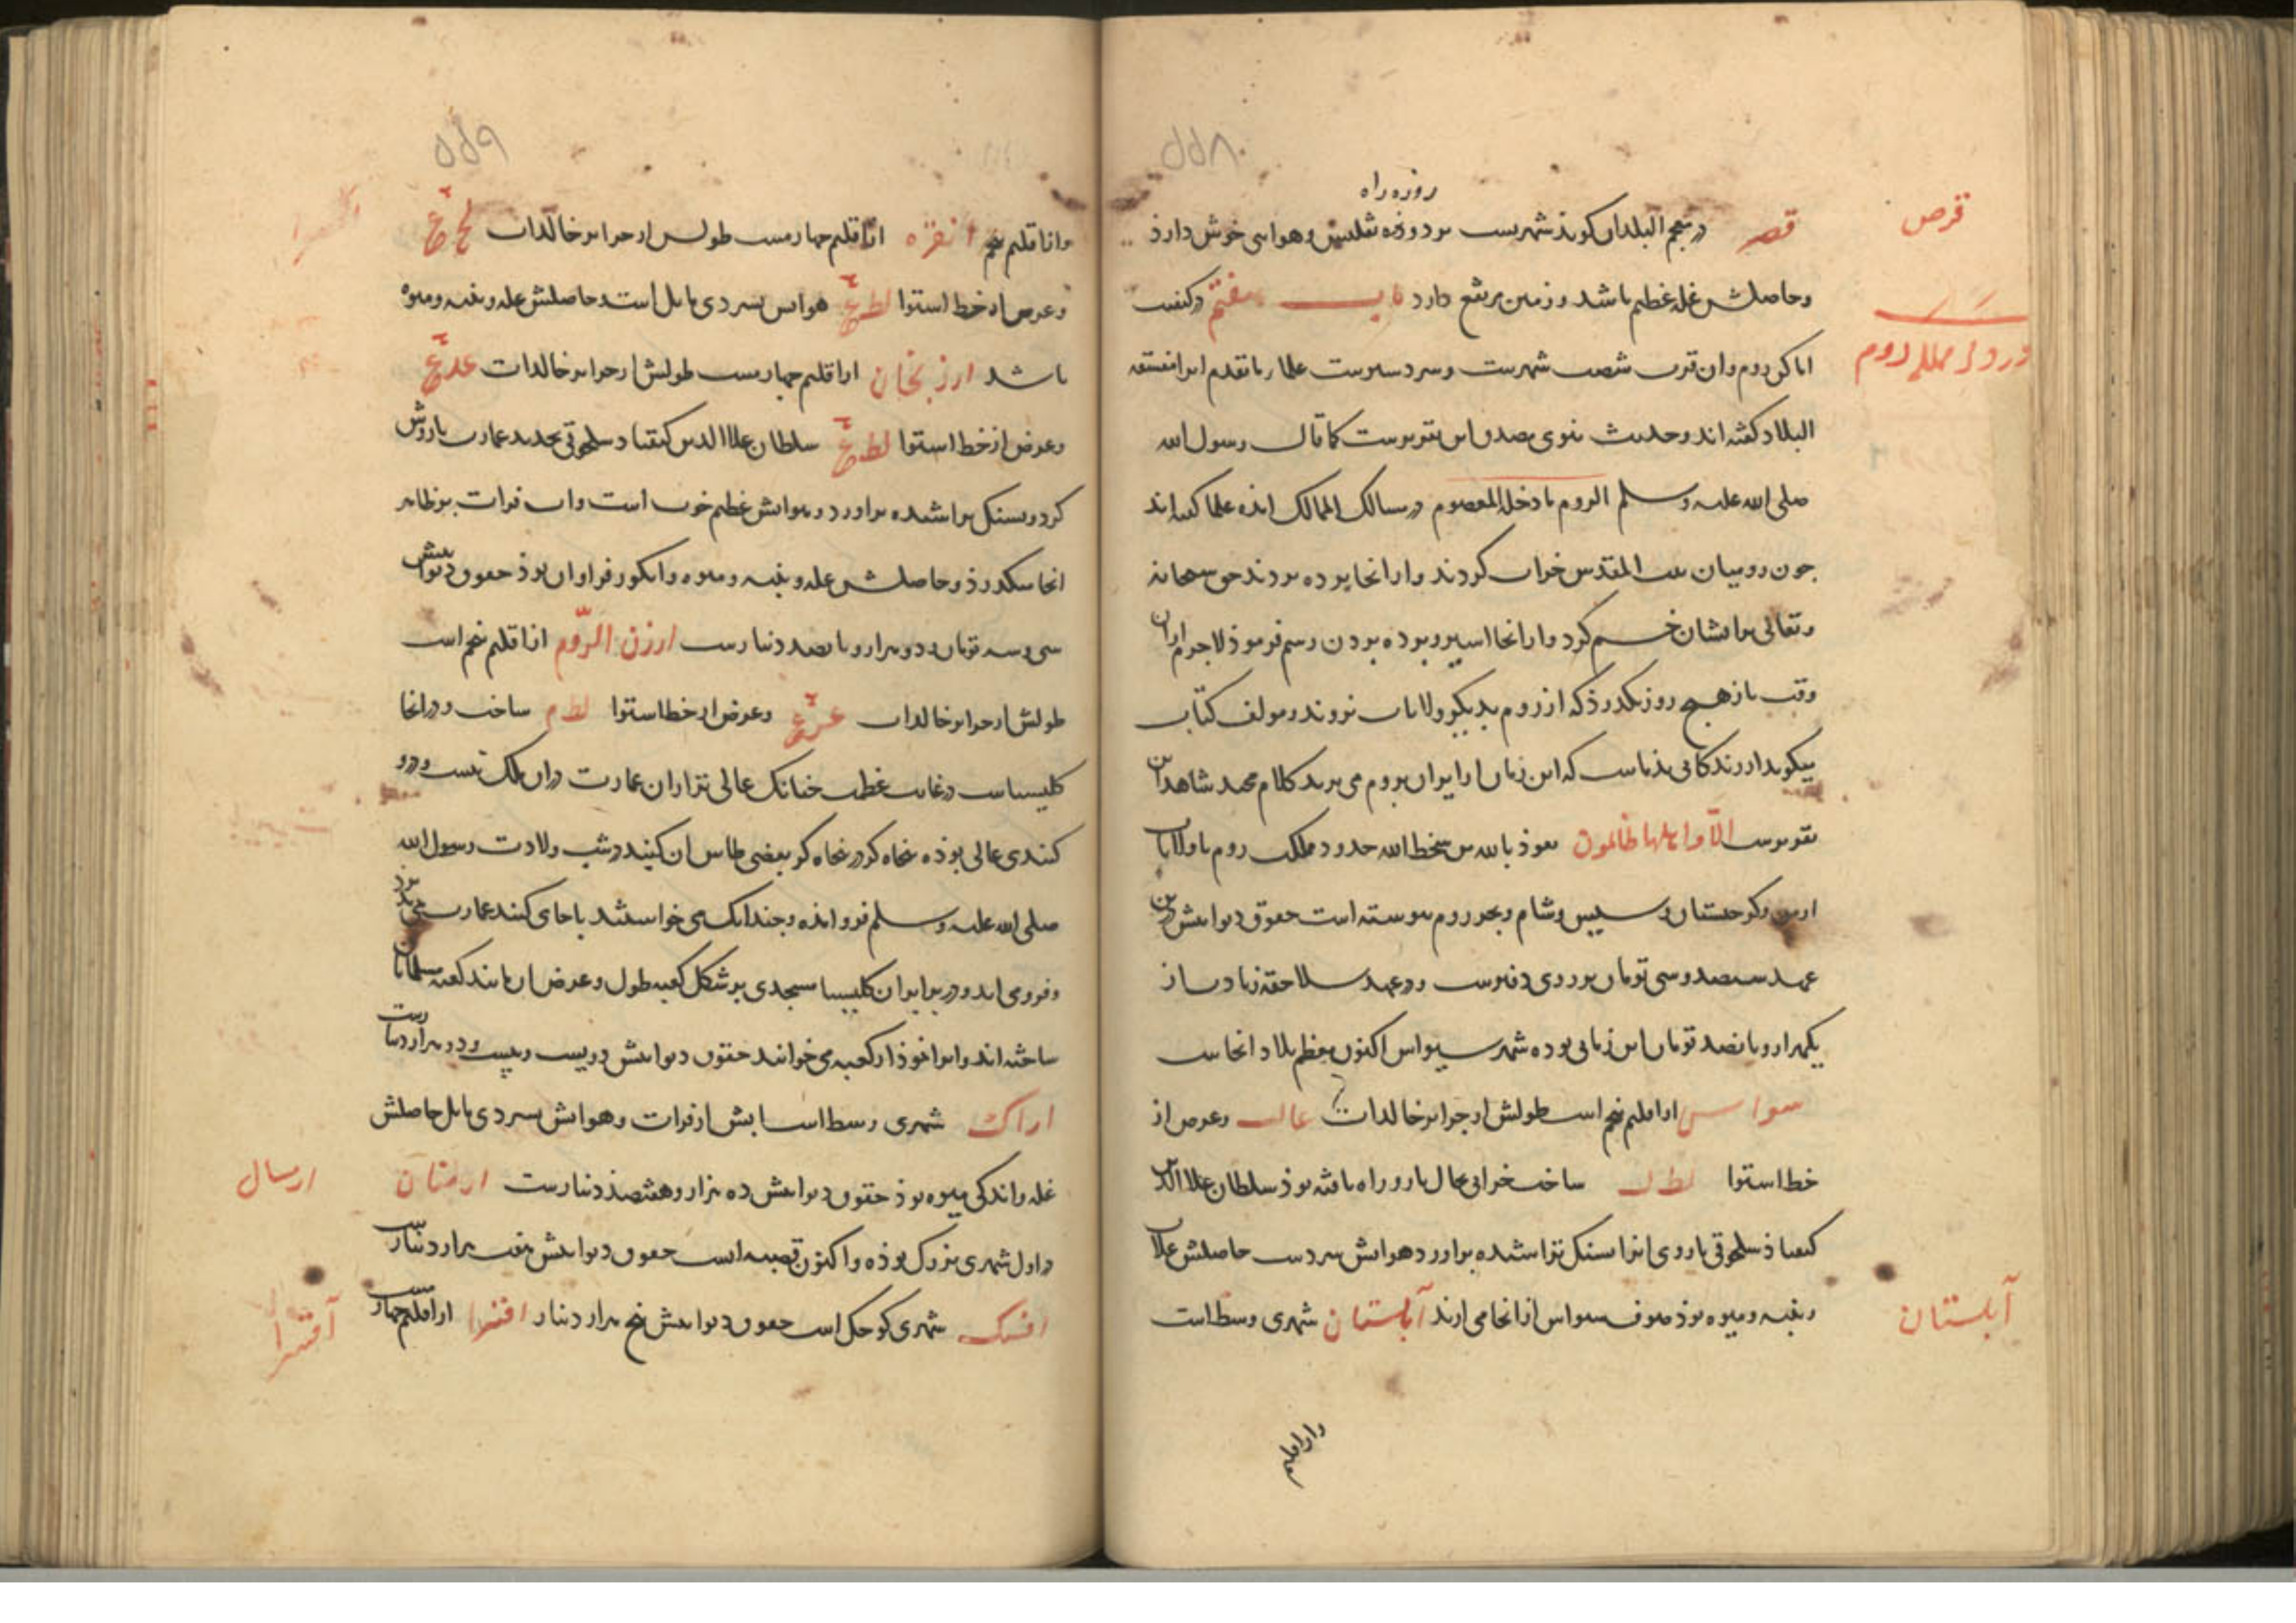 ۵۵۸
قرص
روزه راه
قصر در معجم البلدان کوید شهریست بر دو تفلیس و هوایی خوش دارد
وحاصلش غله عظیم باشد و زمین مرتفع دارد باب هفتم در کیفیت
در ذکر ممالک روم
اماکن روم وآن قرب شصت شهرست و سردسیرست علما ما تقدم انرا
البلاد کفته اند وحدیث نبوی بصدق این تقریرست کما قال رسول الله
صلی الله علیه وسلم الروم ما دخل المعصوم در مسالک الممالک امده علما کفته اند
جون رومیان بیت المقدس خراب کردند و از انجا برده بردند حق سبحانه
وتعالی برایشان خشم کرد و از انجا اسیر و برده بردن رسم فرموذ لاجرم از ان
وقت باز هیج روز نکذرد که از روم بدیکر ولایات نروند مولف کتاب
میکوید از زندکانی بذ ماست که این زمان از ایران بروم می برند کلام مجید شاهد این
تقریرست الا واهلها ظالمون نعوذ بالله من سخط الله حدود مملکت روم تا ولایات
ارمن وکرجستان و سیس و شام و بحر روم پیوسته است حقوق دیوانیش درین
عهد سیصد و سی تومان بر روی دفترست و در عهد سلاجقه زیادت از
یکهزار و پانصد تومان این زمانی بوده شهر سیواس اکنون معظم بلاد انجاست
سواس از اقلیم پنجم است طولش از جزایر خالدات عال وعرض از
خط استوا لط ل ساخت خرابی بحال بارو راه یافته بوذ سلطان علاالدین
کیقباذ سلجوقی باروی انرا سنک تراشیده براورد هوایش سردست حاصلش غلات
آبلستان
و پنبه و میوه بوذ صوف سیواس از انجا می ارند آبلستان شهری وسط است
واز اقلیم
۵۵۹
واز اقلیم پنجم انقره از اقلیم چهارمست طولش از جزایر خالدات
وعرض از خط استوا هوایش بسردی مایل است حاصلش غله و پنبه و میوه
باشد ارزنجان از اقلیم چهارمست طولش از جزایر خالدات
وعرض از خط استوا سلطان علاالدین کیقباد سلجوقی تجدید عمارت باروش
کرد و بسنک تراشیده براورد و هوایش عظیم خوب است واب فرات بر ظاهر
انجا میکذرذ و حاصلش غله و پنبه و میوه و انکور فراوان بوذ حقوق دیوانیش
سی وسه تومان و دو هزار و پانصد دینارست ارزن الروم از اقلیم پنجم است
طولش از جزایر خالدات وعرض از خط استوا لط م ساخت و در انجا
کلیسیاست در غایت عظمت جنانک عالی تر از ان عمارت در ان ملک نیست و درو
کنبدی عالی بوذه پنجاه کز در پنجاه کز بعضی طاس ان کنبد در شب ولادت رسول الله
صلی الله علیه وسلم فرو امذه و جندانک می خواستند باجای کنند عمارت
و فرو می اید و در برابر ان کلیسیا مسجدی بر شکل کعبه طول و عرض ان مانند کعبه مسلمانان
ساخته اند و انرا نموذار کعبه می خوانند حقوق دیوانیش دویست و بیست و دو هزار دینارست
اراک شهری وسط است ابش از فرات و هوایش بسردی مایل حاصلش
ارسال
غله واندکی میوه بوذ حقوق دیوانیش ده هزار و هشتصد دینارست ارمنان
در اول شهری بزرک بوذه و اکنون قصبه است حقوق دیوانیش هفت هزار دینارست
افسک شهری کوجک است حقوق دیوانیش پنج هزار دینار اقسرا از اقلیم چهارمست
آقسرا